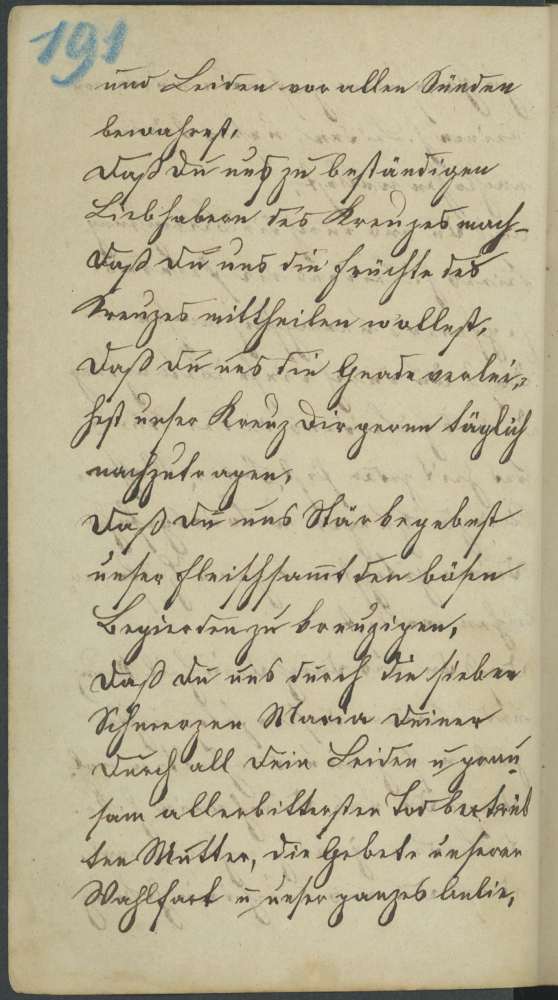 191
und Leiden vor allen Sünden
bewahrest,
Daß du uns zu beständigen
Liebhabern des Kreuzes mach-
Daß du uns die Früchte des
Kreuzes mittheilen wollest,
Daß du uns die Gnade verlei-
hest unser Kreuz dir gerne täglich
nachzutragen,
Daß du uns Stärke gebest
unser Fleisch sam̄t den bösen
Begierden zu kreuzigen,
Daß du uns durch die sieben
Schmerzen Maria deiner
durch all dein Leiden u grau-
sam allerbittersten Tod betrüb
ten Mutter, die Gebete unserer
Wahlfart u unser ganzes Anlie,